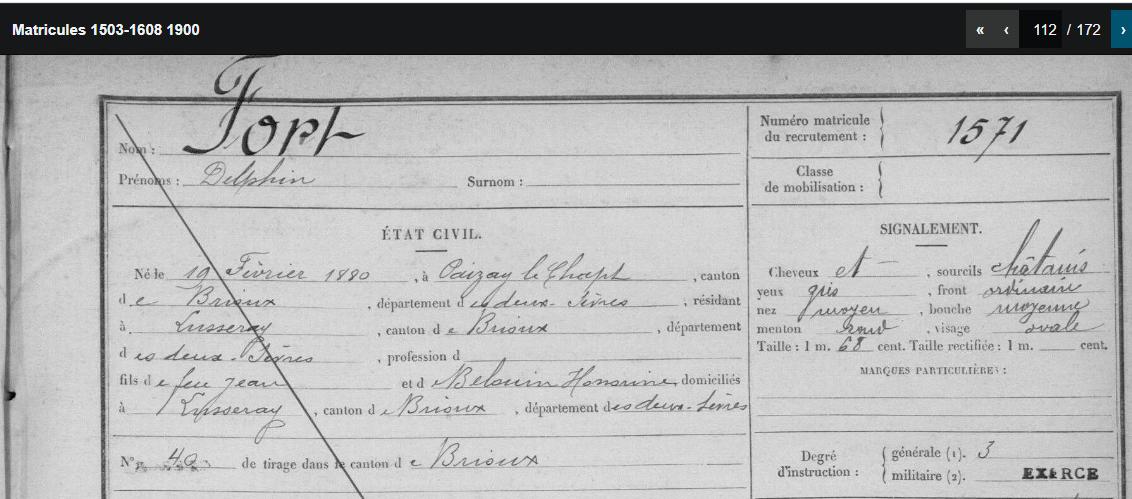 Matricules 1503-1608 1900
« ‹ 112 / 172 ›
Fort
Nom :
Prénoms : Delphin Surnom :
Numéro matricule
du recrutement : 1571
Classe
de mobilisation :
ÉTAT CIVIL.
Né le 19 Février 1880, à Paizay le Chapt, canton
de Brioux, département des deux-Sèvres, résidant
à Lusseray, canton de Brioux, département
des deux-Sèvres, profession d
fils de feu Jean et d Belouin Honorine, domiciliés
à Lusseray, canton de Brioux, département des deux-Sèvres
N° 40 de tirage dans le canton de Brioux
SIGNALEMENT.
Cheveux et, sourcils châtains
yeux gris, front ordinaire
nez moyen, bouche moyenne
menton rond, visage ovale
Taille : 1 m. 68 cent. Taille rectifiée : 1 m. cent.
MARQUES PARTICULIÈRES :
Degré
d'instruction :
générale (1). 3
militaire (2). EXERCE